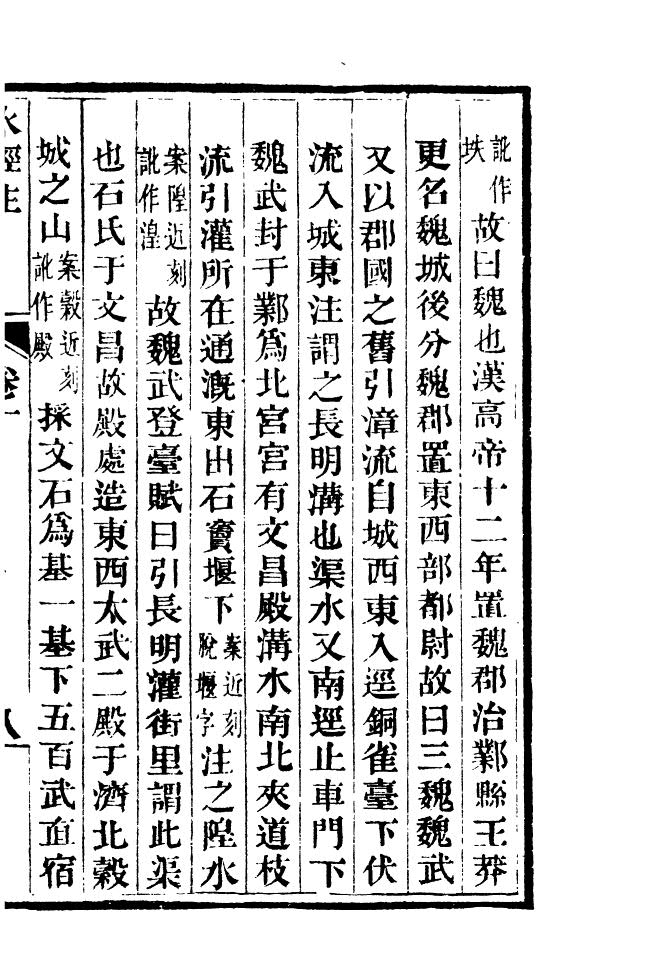 訛作故曰魏也漢高帝十二年置魏郡治鄴縣王莽
更名魏城後分魏郡置東西部都尉故曰三魏魏武
又以郡國之舊引漳流自城西東入逕銅雀臺下伏
流入城東注謂之長明溝也渠水又南逕止車門下
魏武封于鄴爲北宮宮有文昌殿溝水南北夾道枝
流引灌所在通溉東出石竇堰下案近刻脫堰字注之隍水
案隍近刻訛作湟故魏武登臺賦曰引長明灌街里謂此渠
也石氏于文昌故殿處造東西太武二殿于濟北穀
城之山案穀近刻訛作殿採文石爲基一基下五百武直宿
水經注 卷十 八